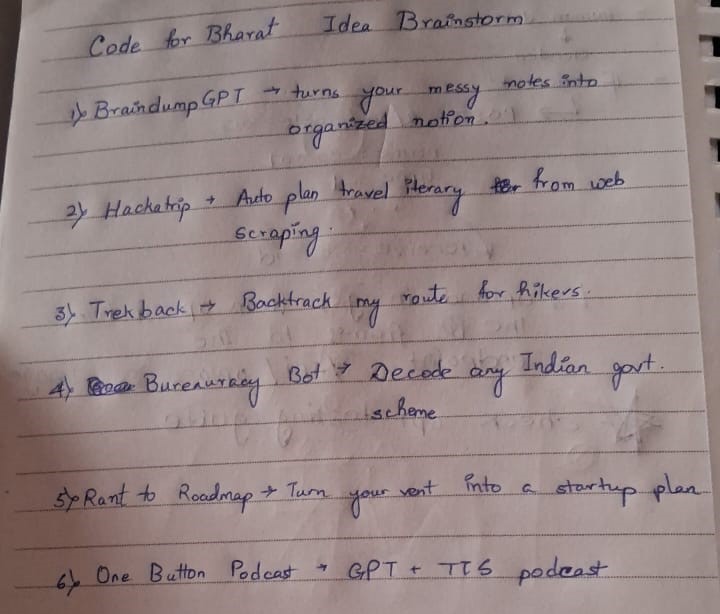 Code for Bharat Idea Brainstorm
1) BraindumpGPT → turns your messy notes into
organized notion.
2) Hackatrip → Auto plan travel iterary from web
scraping.
3) Trekback → Backtrack my route for hikers.
4) Bureauracy Bot → Decode any Indian govt.
scheme
5) Rant to Roadmap → Turn your vent into a startup plan
6) One Button Podcast → GPT + TTS podcast